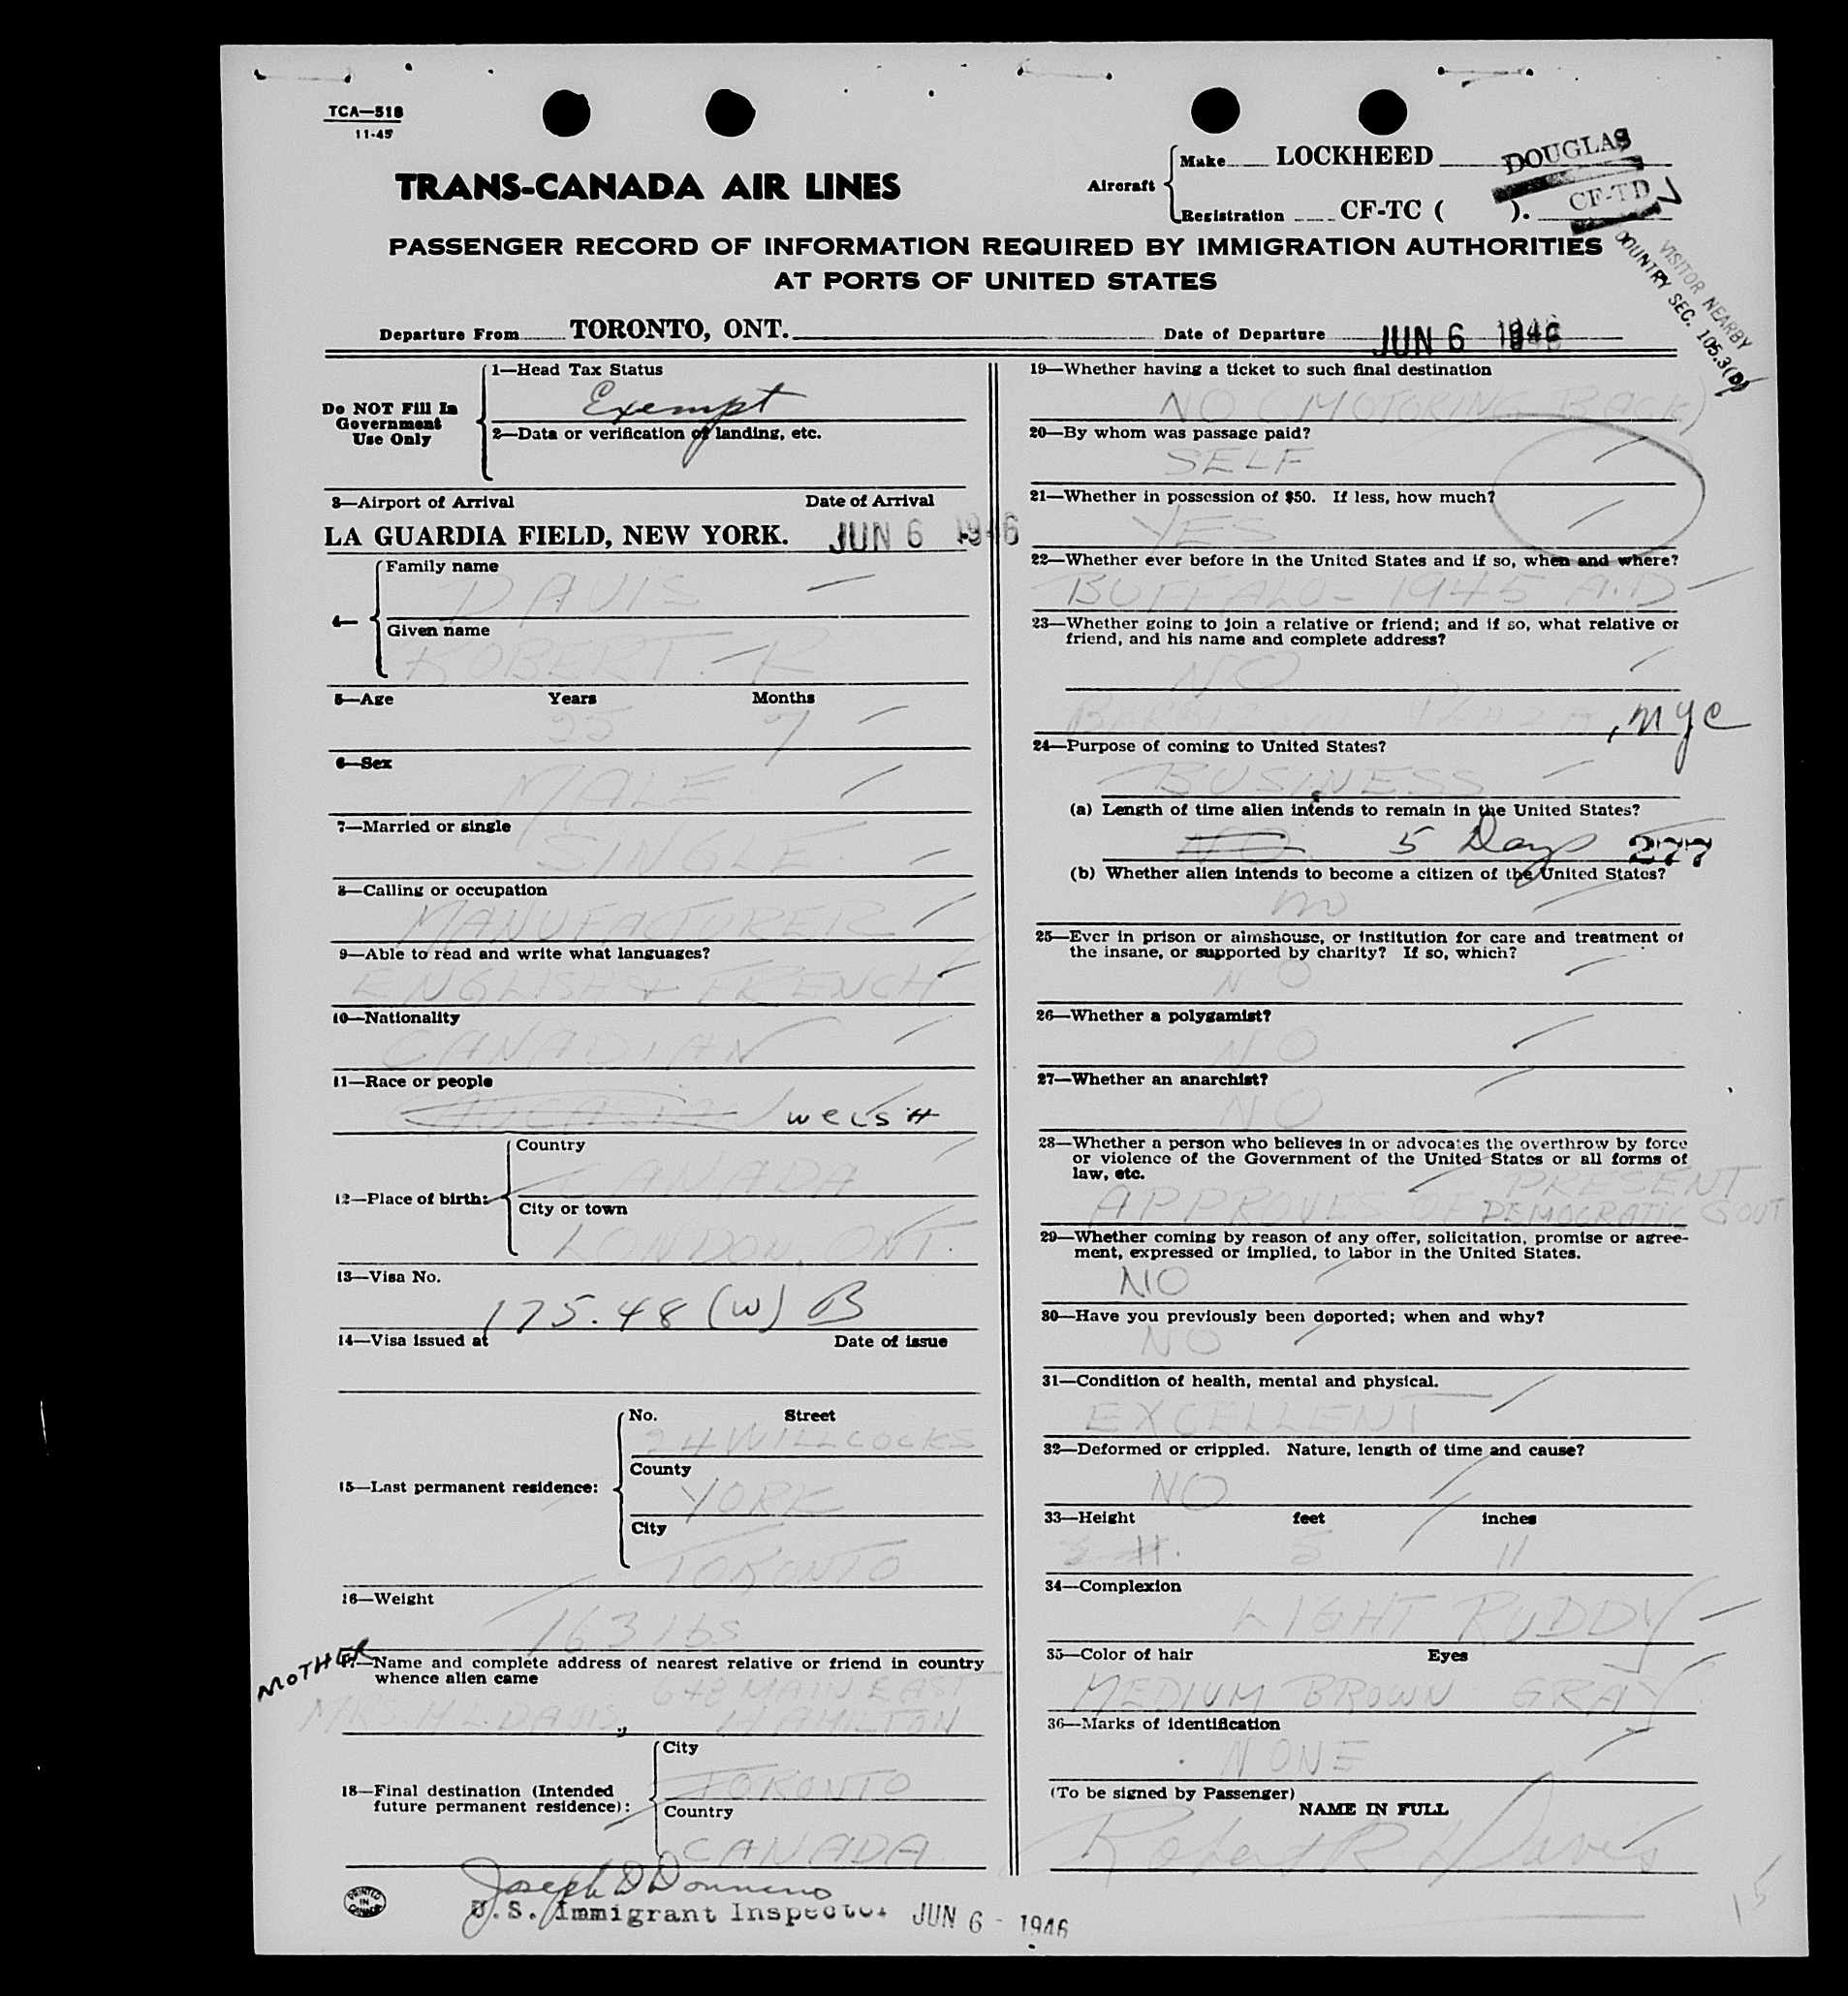 TCA—518
11-45
TRANS-CANADA AIR LINES
Aircraft
Make LOCKHEED DOUGLAS
Registration CF-TC ( ). CF-TD
VISITOR NEARBY
COUNTRY SEC. 105.3(B)
PASSENGER RECORD OF INFORMATION REQUIRED BY IMMIGRATION AUTHORITIES
AT PORTS OF UNITED STATES
Departure From TORONTO, ONT. Date of Departure JUN 6 1946
Do NOT Fill In
Government
Use Only
1—Head Tax Status
Exempt
2—Data or verification of landing, etc.
3—Airport of Arrival Date of Arrival
LA GUARDIA FIELD, NEW YORK. JUN 6 1946
4—
Family name
DAVIS
Given name
ROBERT - R
5—Age Years Months
25 7
6—Sex
MALE
7—Married or single
SINGLE
8—Calling or occupation
MANUFACTURER
9—Able to read and write what languages?
ENGLISH & FRENCH
10—Nationality
CANADIAN
11—Race or people
WELSH
12—Place of birth:
Country
CANADA
City or town
LONDON, ONT.
13—Visa No.
175.48 (W) B
14—Visa issued at Date of issue
15—Last permanent residence:
No. Street
24 WILLCOCKS
County
YORK
City
TORONTO
16—Weight
163 lbs
MOTHER
17—Name and complete address of nearest relative or friend in country
whence alien came
648 MAIN EAST
MRS. H. L. DAVIS, HAMILTON
18—Final destination (Intended
future permanent residence):
City
TORONTO
Country
CANADA
Joseph D
U.S. Immigrant Inspector JUN 6 - 1946
PRINTED
IN
CANADA
19—Whether having a ticket to such final destination
NO (MOTORING BACK)
20—By whom was passage paid?
SELF
21—Whether in possession of $50. If less, how much?
YES
22—Whether ever before in the United States and if so, when and where?
BUFFALO - 1945 A.D
23—Whether going to join a relative or friend; and if so, what relative or
friend, and his name and complete address?
NO
PLAZA, NYC
24—Purpose of coming to United States?
BUSINESS
(a) Length of time alien intends to remain in the United States?
NO 5 Days 277
(b) Whether alien intends to become a citizen of the United States?
no
25—Ever in prison or almshouse, or institution for care and treatment of
the insane, or supported by charity? If so, which?
NO
26—Whether a polygamist?
NO
27—Whether an anarchist?
NO
28—Whether a person who believes in or advocates the overthrow by force
or violence of the Government of the United States or all forms of
law, etc.
APPROVES OF PRESENT
DEMOCRATIC GOVT
29—Whether coming by reason of any offer, solicitation, promise or agree-
ment, expressed or implied, to labor in the United States.
NO
30—Have you previously been deported; when and why?
NO
31—Condition of health, mental and physical.
EXCELLENT
32—Deformed or crippled. Nature, length of time and cause?
NO
33—Height feet inches
5 11
34—Complexion
LIGHT RUDDY
35—Color of hair Eyes
MEDIUM BROWN GRAY
36—Marks of identification
NONE
(To be signed by Passenger)
NAME IN FULL
Robert R Davis
15